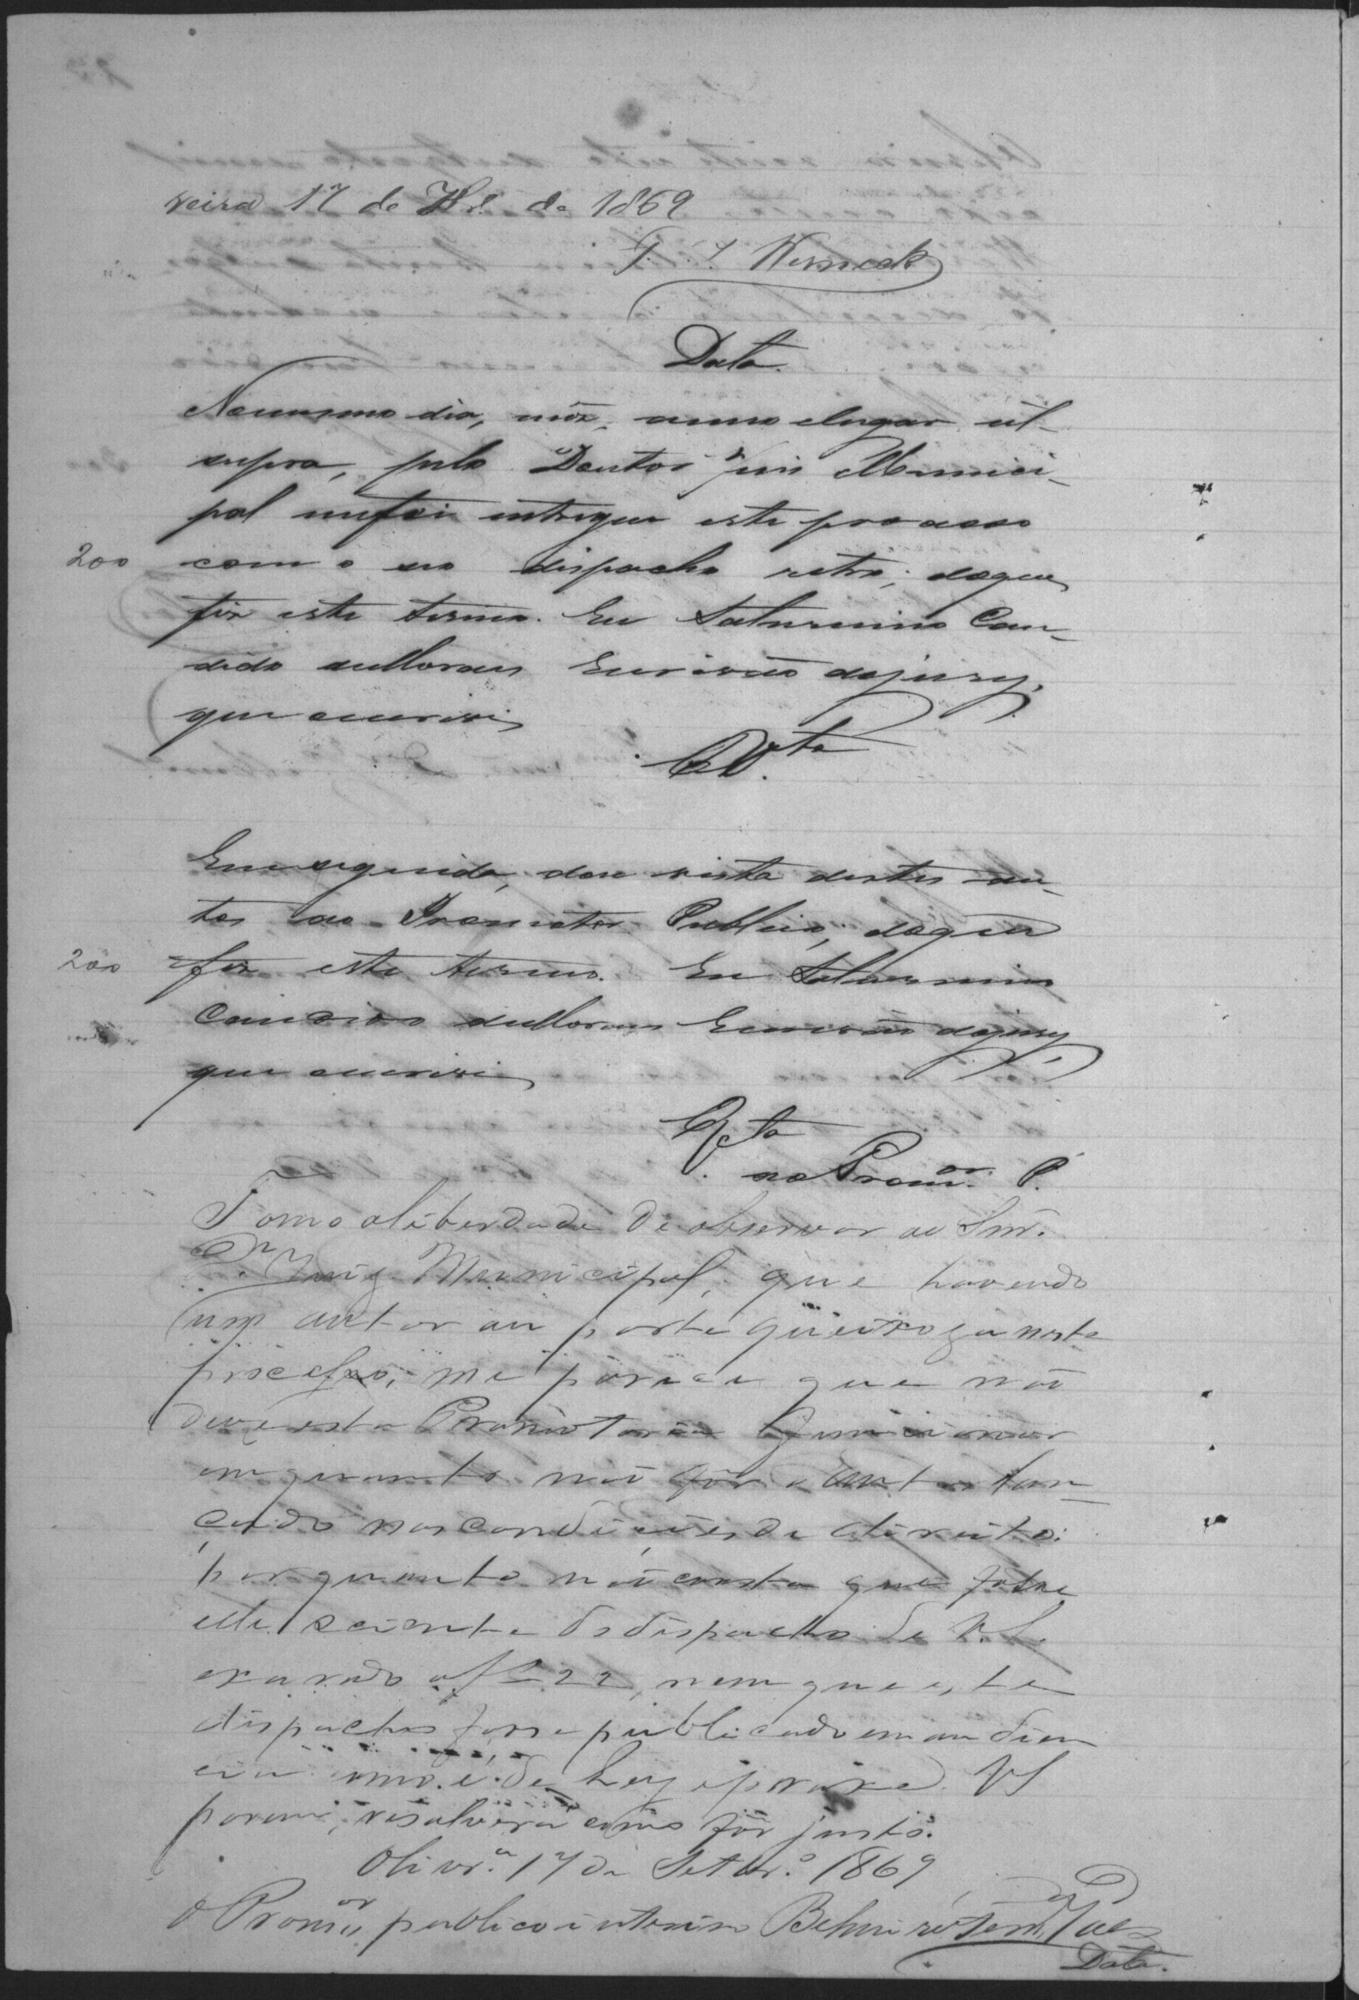 veira 17 de 7br.º de 1869
Werneck
Data.
No mesmo dia, mêz, anno elugar ut
supra, pelo Doutor Juis Munici-
pal mefoi entregue este processo
200 com o seo despacho retro; doque
fiz este termo. Eu Saturnino Can-
dido deMoraes Escrivão dojury,
que escrevi
V.ta
Emseguida, dou vista destes au-
tos ao Promotor Publico, doque
200 fiz este termo. Eu Saturnino
Candido deMoraes Escrivão dojury
que escrevi
V.ta
ao Prom.or P.
Tomo aliberdade de observar ao Snr.
Dr. Juiz Municipal, que havendo
um autor ou parte queixoza neste
processo, me parece que não
deve esta Promotoria funccionar
em quanto não fôr o autor lan-
çado nas condições de direito:
por quanto não consta que fosse
elle sciente do despacho de V.S.
exarado a fs 22, nem que este
despacho fosse publicado em audien
cia como é de Ley e praxe. VS
porem, resolverá como fôr justo.
Olivr.ª 17 de Setbr.º 1869
O Prom.or publico interino
Data.